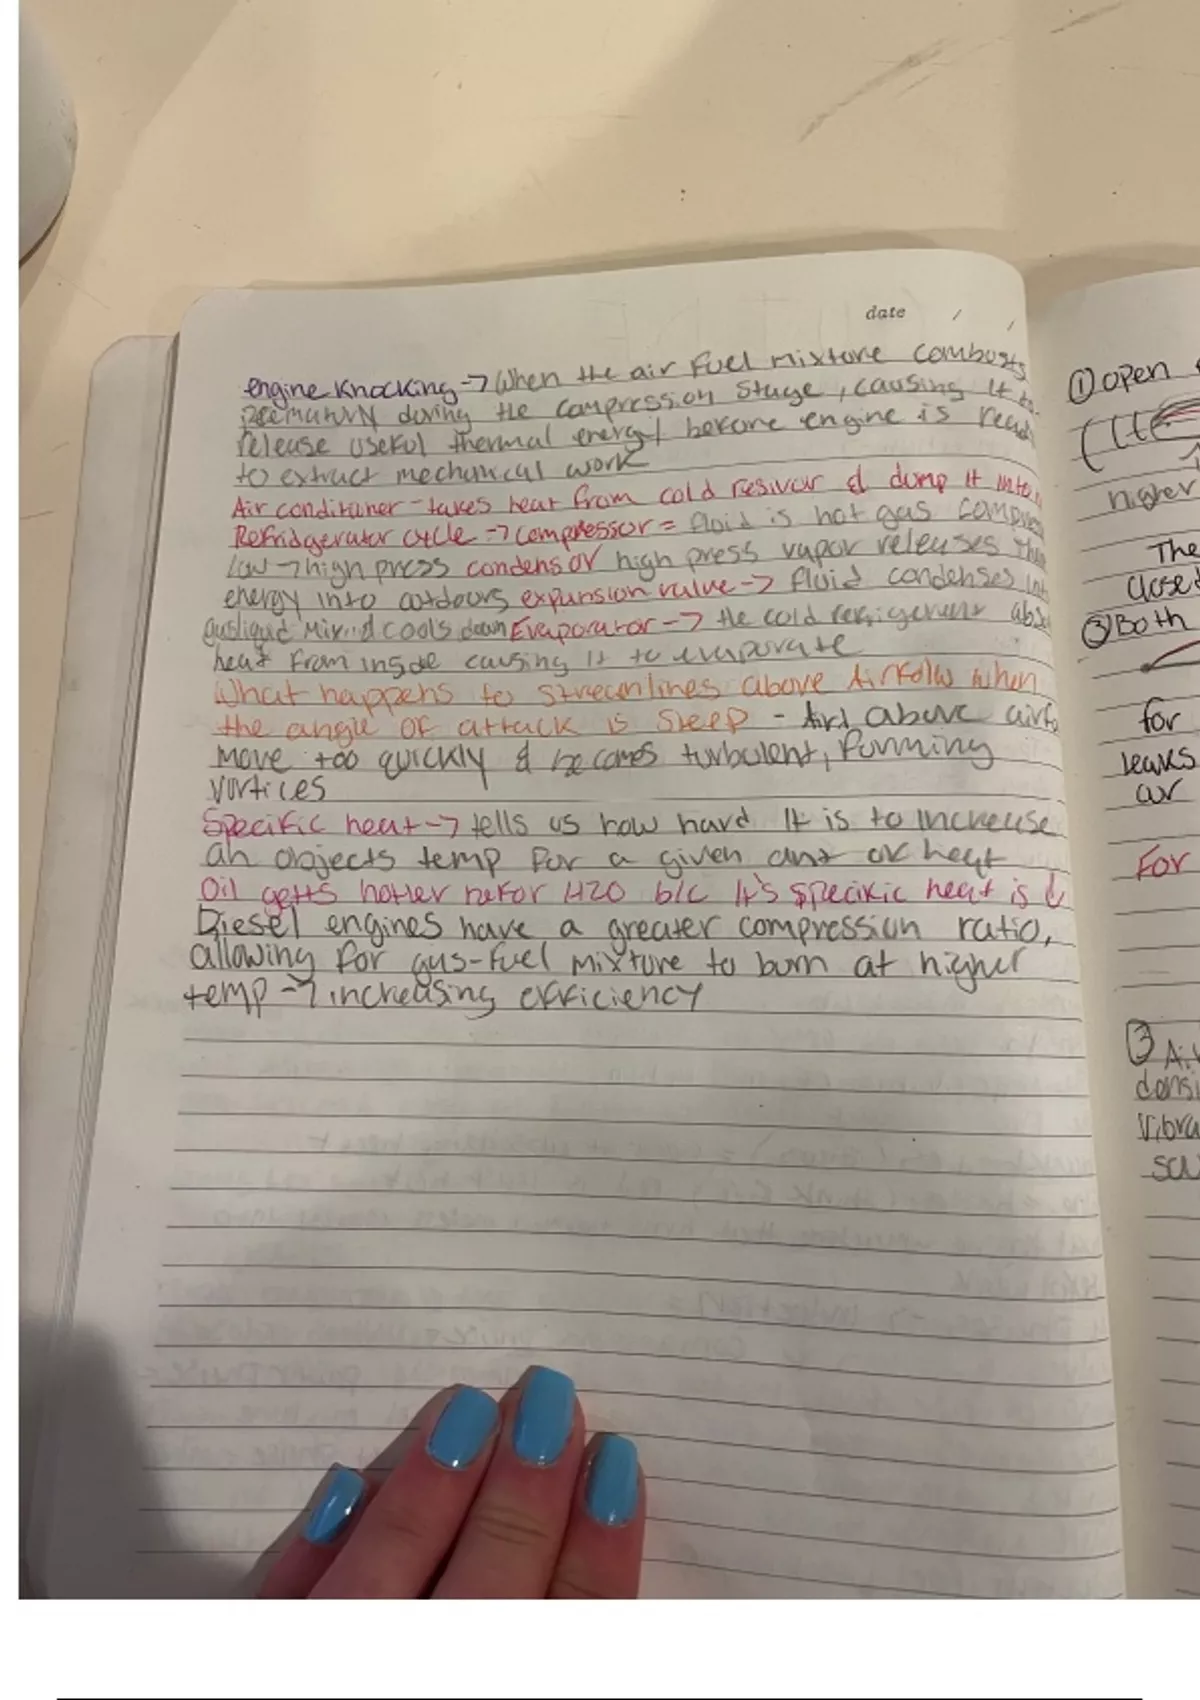 date / /
engine knocking → When the air fuel mixture combusts
during the compression stage, causing it to
release useful thermal energy before engine is ready
to extract mechanical work
Air conditioner - takes heat from cold resivor & dump it into
Refridgerator cycle → compressor = fluid is hot gas compress
low → high press condensor high press vapor releases
energy into outdours expansion value → fluid condenses into
gusliquid mix & cools down Evaporator → the cold refrigerent abso
heat from inside causing it to evaporate
What happens to streamlines above Airfolw when
the angle of attack is Steep - Aird above airfo
move too quickly & becomes turbulent, furming
vortices
Specific heat → tells us how hard It is to increase
an objects temp for a given amt of heat
Oil getts hotter befor H20 b/c It's specific heat is ↓
Diesel engines have a greater compression ratio,
allowing for gus-fuel mixture to burn at higher
temp → increasing efficiency
① open
higher
The
Closed
③ Both
for
leaks
air
For
③ Air
densi
Vibra